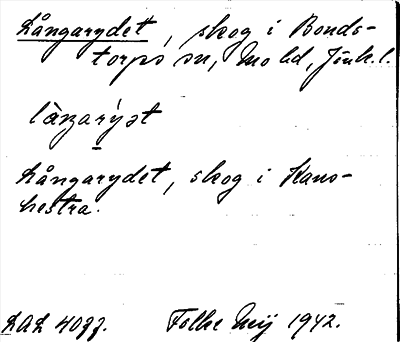 Långarydet, skog i Bonds-
torps sn, Mo hd, Jönk. l.
Långarydet, skog i Kans-
hestra.
LAL 4077. Folke Meij 1942.